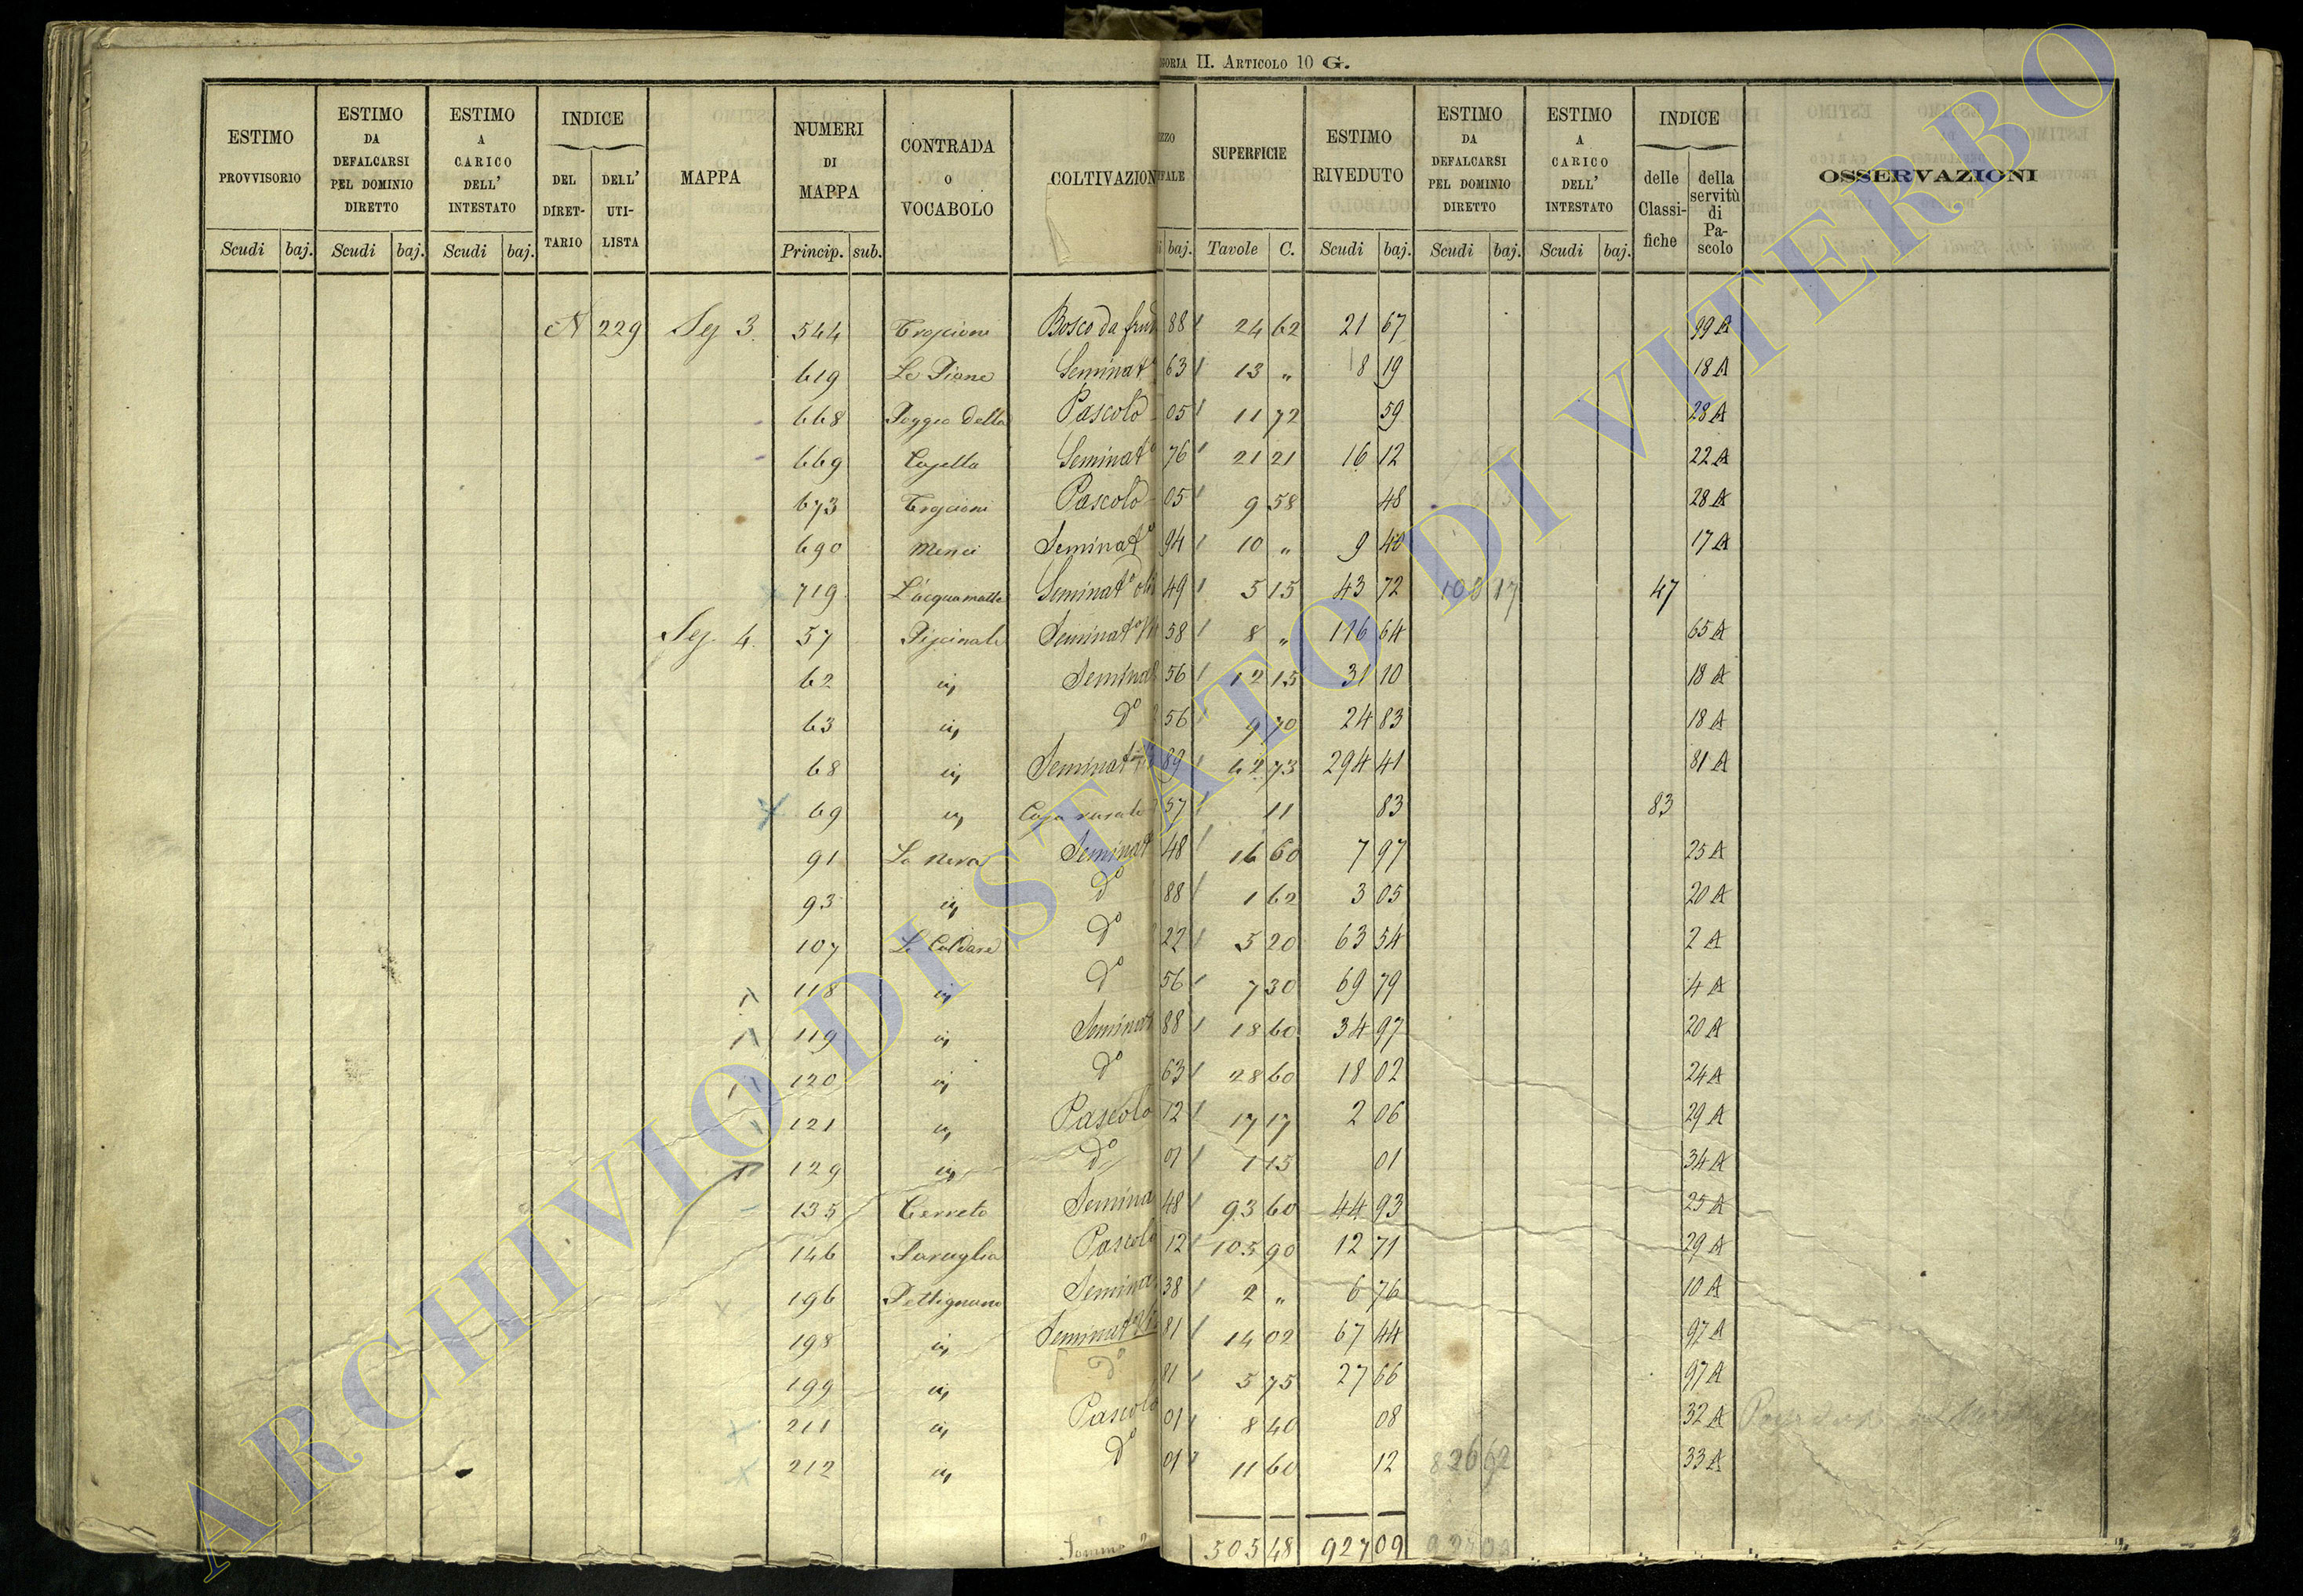 II. Articolo 10 G.
ESTIMO PROVVISORIO
ESTIMO DA DEFALCARSI PEL DOMINIO DIRETTO
ESTIMO A CARICO DELL' INTESTATO
INDICE
DEL DIRETTARIO
DELL' UTILISTA
MAPPA
NUMERI DI MAPPA
CONTRADA o VOCABOLO
COLTIVAZION
SUPERFICIE
ESTIMO RIVEDUTO
ESTIMO DA DEFALCARSI PEL DOMINIO DIRETTO
ESTIMO A CARICO DELL' INTESTATO
INDICE
delle Classifiche
della servitù di Pascolo
OSSERVAZIONI
Scudi baj. Scudi baj. Scudi baj. Princip. sub. baj. Tavole C. Scudi baj. Scudi baj. Scudi baj.
N 229 Sez 3. 544 Bosco da 88 24 62 21 67 99 A
619 Le Piane Seminat° 63 13 " 8 19 18 A
668 Poggio della Pascolo 05 11 72 59 28 A
669 Seminat° 76 21 21 16 12 22 A
673 Pascolo 05 9 58 48 28 A
690 Seminat° 94 10 " 9 40 17 A
719 L'acquamatta Seminat° 49 5 15 43 72 108 17 47
Sez. 4. 57 Piscinale Seminat° 58 8 " 116 64 65 A
62 Semina 56 12 15 31 10 18 A
63 d° 56 9 70 24 83 18 A
68 Seminat° 89 62 73 294 41 81 A
69 Casa rurale 57 11 83 83
91 La Seminat 48 16 60 7 97 25 A
93 d° 88 1 62 3 05 20 A
107 Le Caldare d° 22 5 20 63 54 2 A
118 d° 56 7 30 69 79 4 A
119 Seminat 88 18 60 34 97 20 A
120 d° 63 28 60 18 02 24 A
121 Pascolo 12 17 17 2 06 29 A
129 d° 01 1 15 01 34 A
135 Cerreto Semina 48 93 60 44 93 25 A
146 Pascolo 12 105 90 12 71 29 A
196 Pettignano Semina 38 2 " 6 76 10 A
198 Seminat° 81 14 02 67 44 97 A
199 d° 81 5 75 27 66 97 A
211 Pascolo 01 8 40 08 32 A
212 d° 01 11 60 12 826 62 33 A
Somma 505 48 927 09
ARCHIVIO DI STATO DI VITERBO